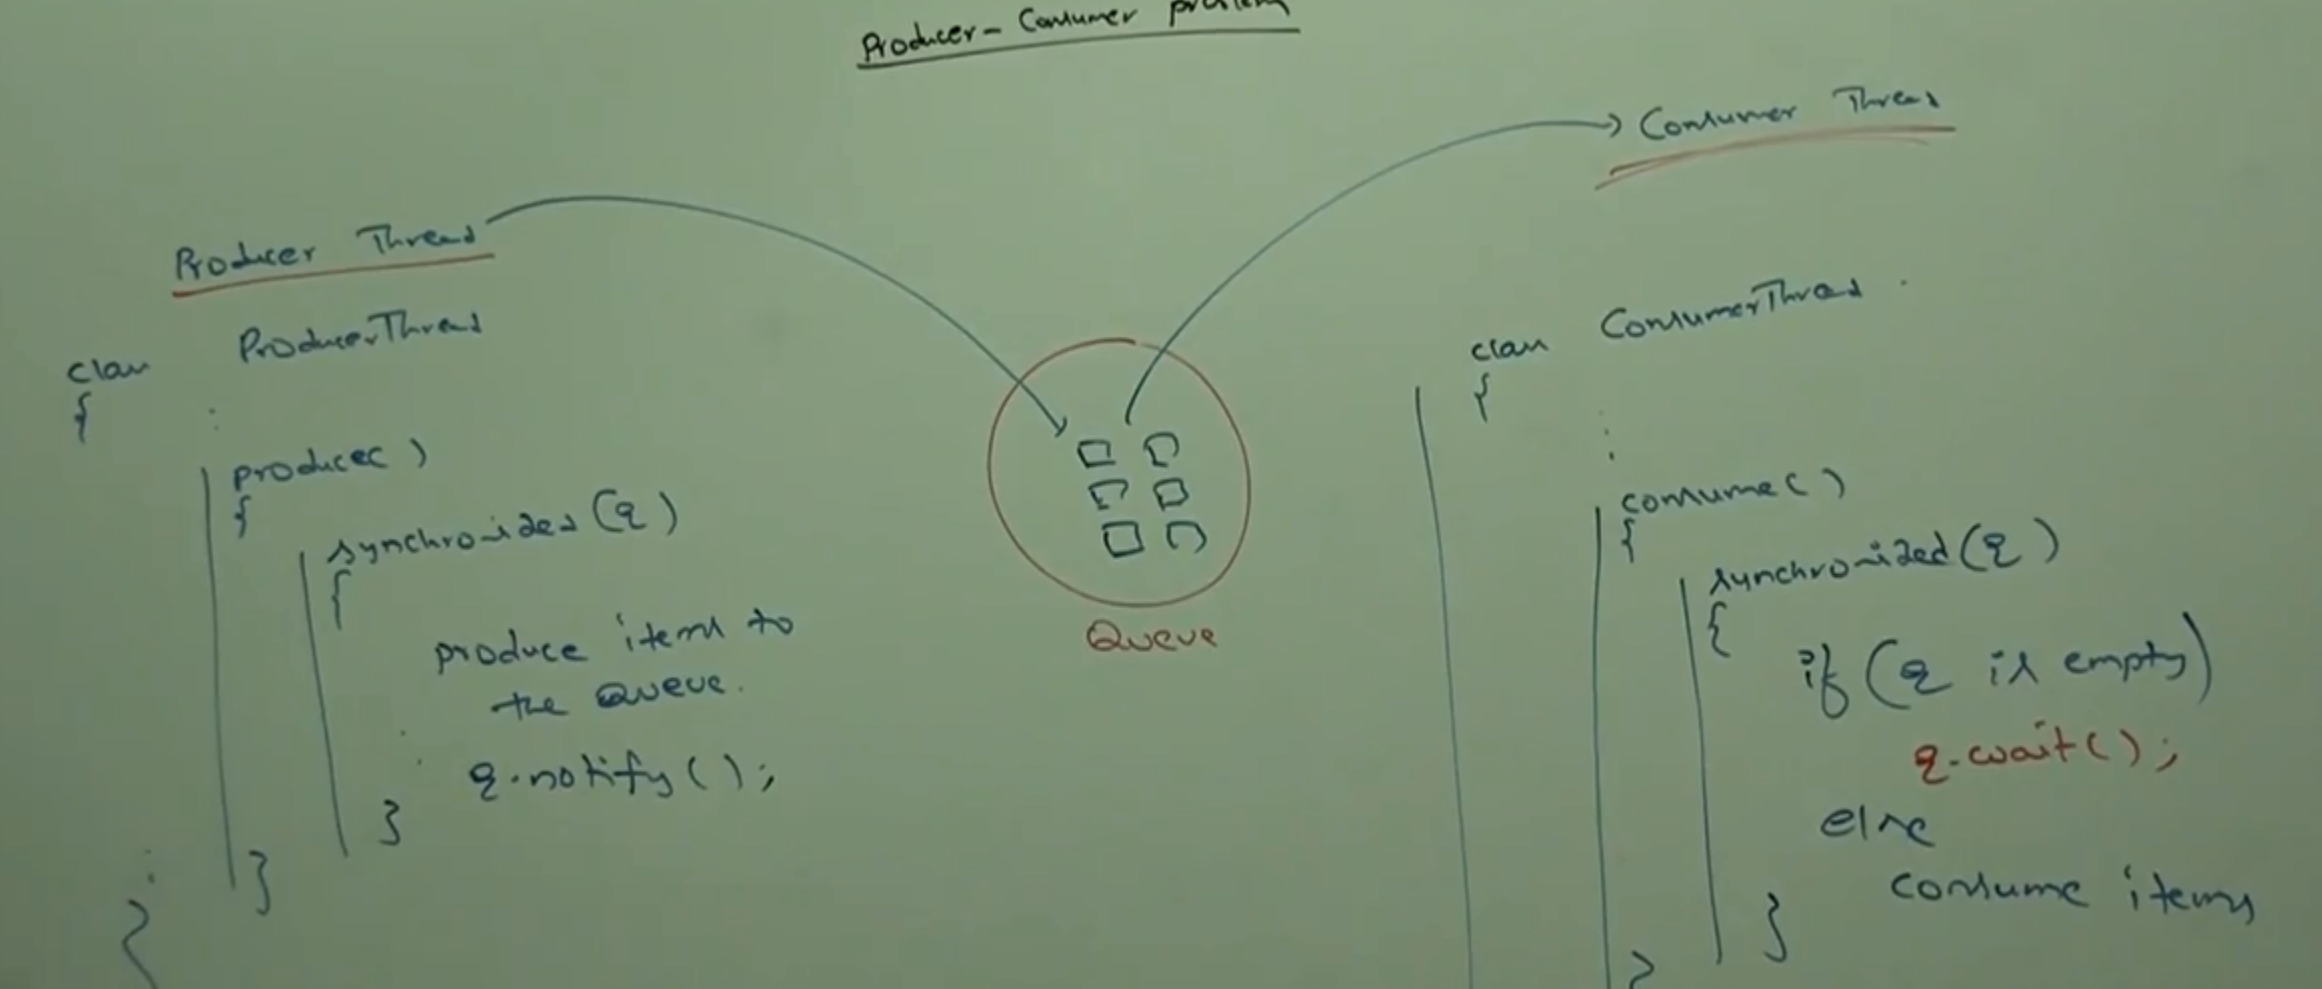 Producer - Consumer problem
Producer Thread
class ProducerThread
{
produce()
{
synchronized(q)
{
produce items to
the Queue.
q.notify();
}
}
}
Queue
Consumer Thread
class ConsumerThread
{
consume()
{
synchronized(q)
{
if (q is empty)
q.wait();
else
consume items
}
}